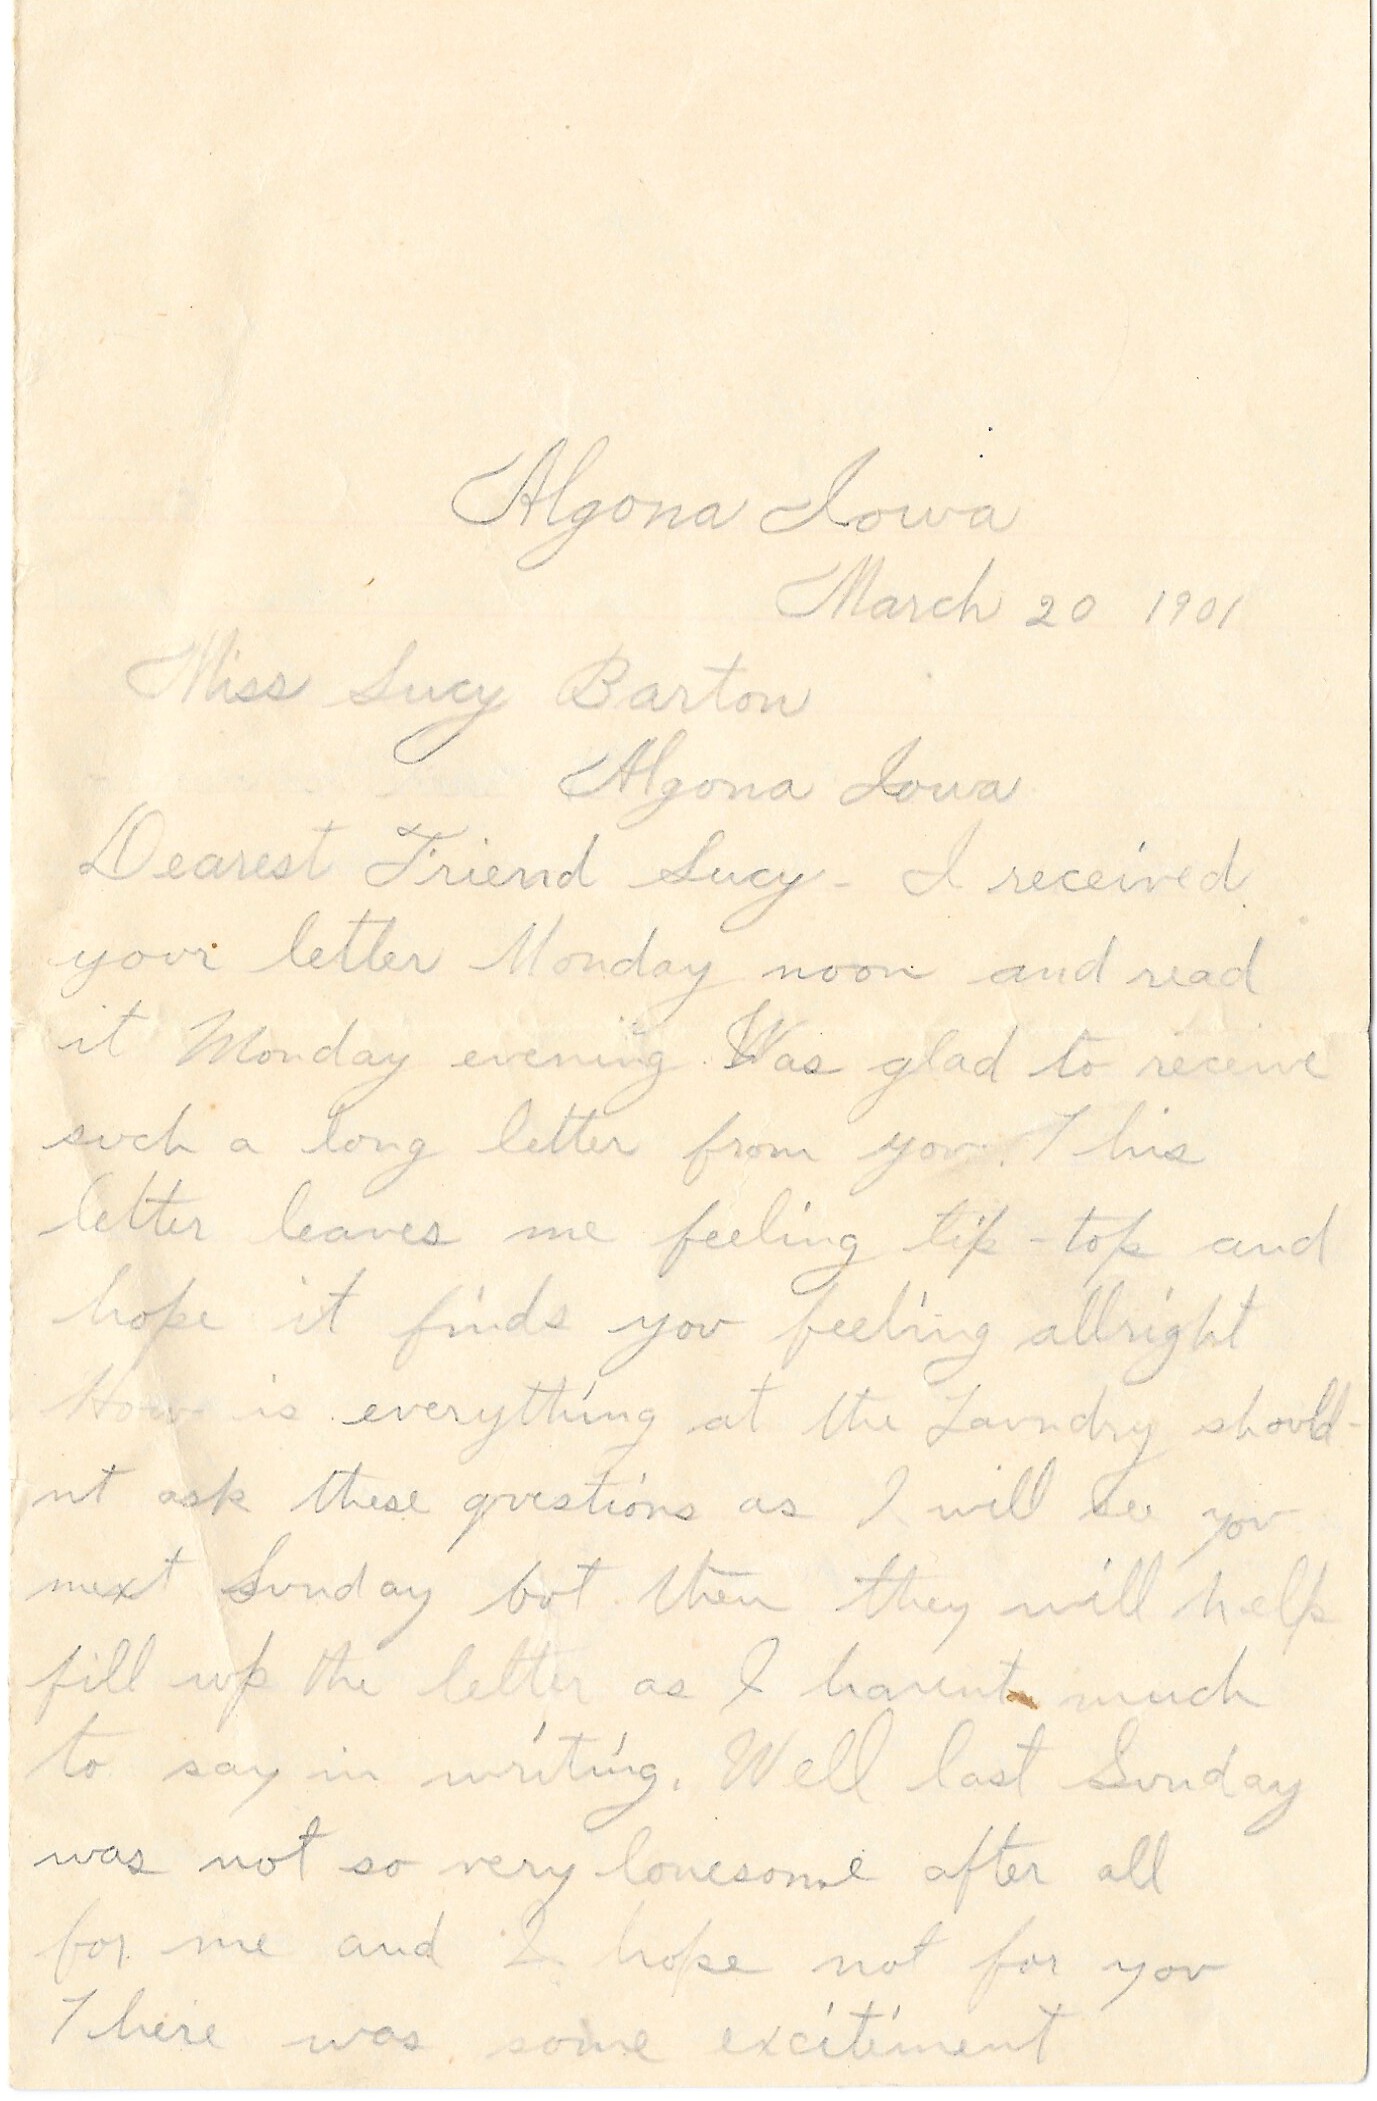 Algona Iowa
March 20 1901
Miss Lucy Barton
Algona Iowa
Dearest Friend Lucy - I received
your letter Monday noon and read
it Monday evening. Was glad to receive
such a long letter from you. This
letter leaves me feeling tip-top and
hope it finds you feeling allright
How is everything at the Laundry should-
nt ask these questions as I will see you
next Sunday but then they will help
fill up the letter as I havent much
to say in writing. Well last Sunday
was not so very lonesome after all
for me and I hope not for you
There was some excitement